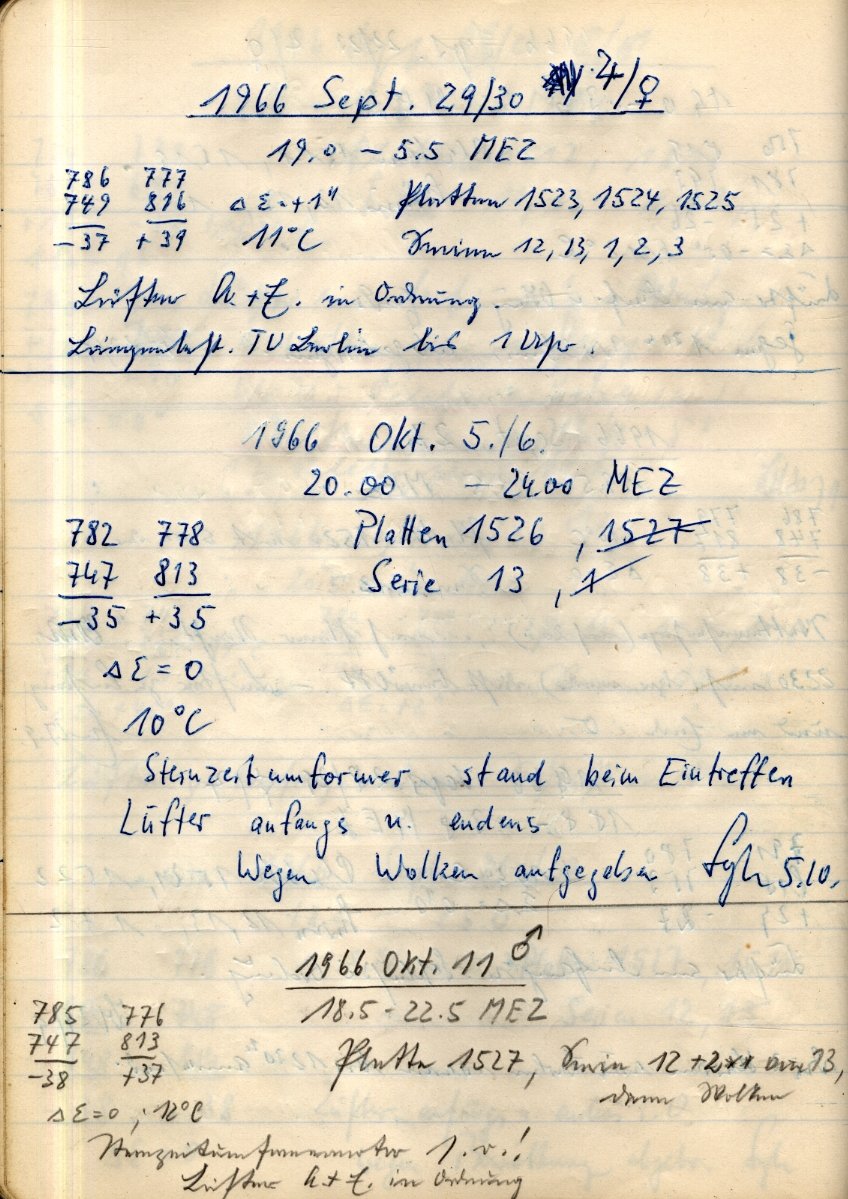 1966 Sept. 29/30 ♃/♀
19.0 – 5.5 MEZ
786 777
749 816 Δ Σ = +1" Platten 1523, 1524, 1525
-37 +39 11°C Serien 12, 13, 1, 2, 3
Lüfter A. + E. in Ordnung.
TU Berlin bis 1 Uhr.
1966 Okt. 5./6.
20.00 – 24.00 MEZ
782 778 Platten 1526, 1527
747 813 Serie 13, 1
-35 +35
Δ Σ = 0
10°C
Sternzeitumformer stand beim Eintreffen
Lüfter anfangs u. endens
Wegen Wolken aufgegeben 5.10.
1966 Okt. 11 ♂
18.5 - 22.5 MEZ
785 776
747 813 Platte 1527, Serie 12 + 2 13,
-38 +37 dann Wolken
Δ Σ = 0 ; 12°C
Lüfter A + E. in Ordnung